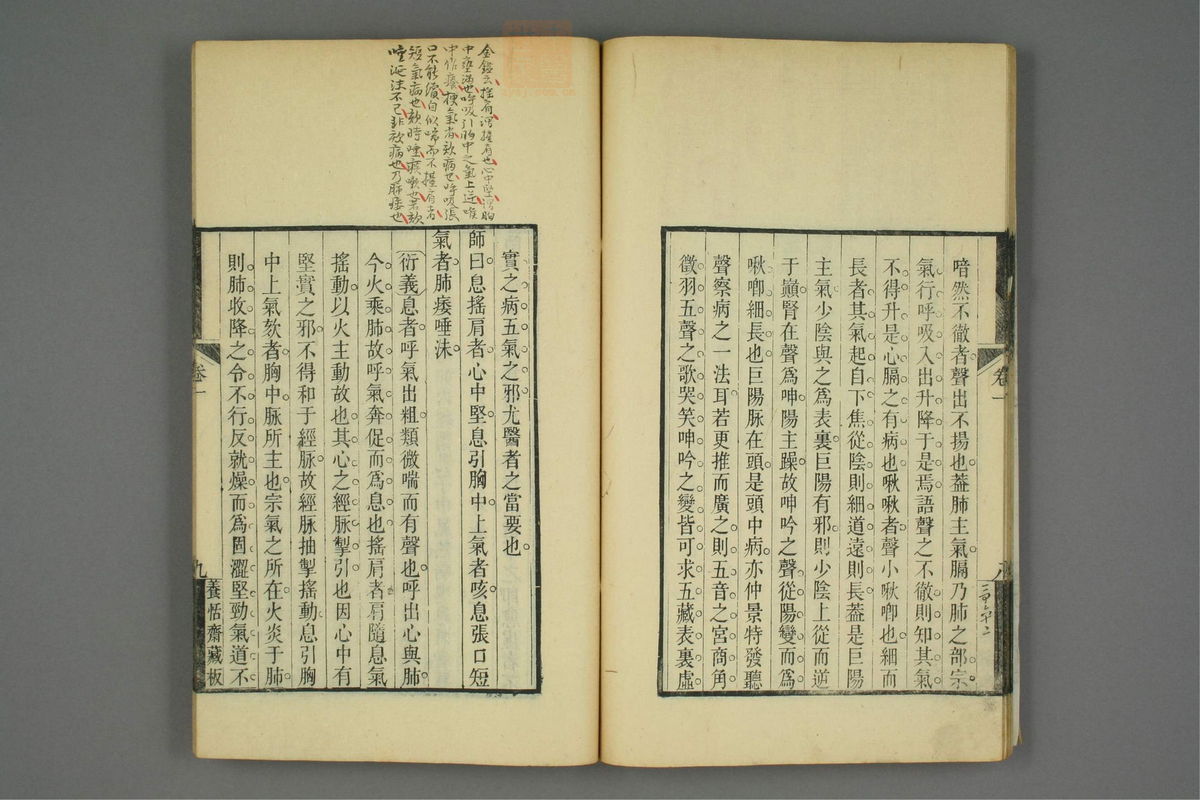 喑然不徹者聲出不揚也蓋肺主氣膈乃肺之部宗
氣行呼吸入出升降于是焉語聲之不徹則知其氣
不得升是心膈之有病也啾啾者聲小啾唧也細而
長者其氣起自下焦從陰則細道遠則長蓋是巨陽
主氣少陰與之爲表裏巨陽有邪則少陰上從而逆
于巔腎在聲爲呻陽主躁故呻吟之聲從陽變而爲
啾唧細長也巨陽脉在頭是頭中病亦仲景特發聽
聲察病之一法耳若更推而廣之則五音之宮商角
徵羽五聲之歌哭笑呻吟之變皆可求五藏表裏虛
卷一
八
金鑑云搖肩謂擡肩也心中堅謂胸
中壅滿也呼吸引胸中之氣上逆喉
中作癢梗氣者欬病也呼吸張
口不能續自似喘而不擡肩者
短氣病也欬時唾痰嗽也若欬
唾涎沫不已非欬病也乃肺痿也
實之病五氣之邪尤醫者之當要也
師曰息搖肩者心中堅息引胸中上氣者咳息張口短
氣者肺痿唾沫
衍義息者呼氣出粗類微喘而有聲也呼出心與肺
今火乘肺故呼氣奔促而爲息也搖肩者肩隨息氣
搖動以火主動故也其心之經脉掣引也因心中有
堅實之邪不得和于經脉故經脉抽掣搖動息引胸
中上氣欬者胸中脉所主也宗氣之所在火炎于肺
則肺收降之令不行反就燥而爲固澀堅勁氣道不
卷一
九
養恬齋藏板